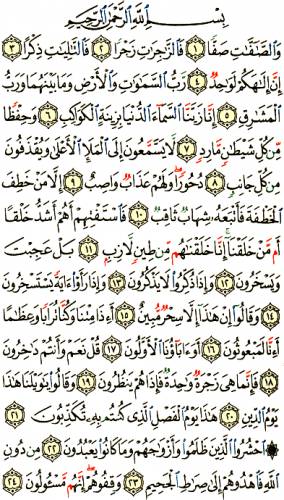 بِسْمِ اللَّهِ الرَّحْمَٰنِ الرَّحِيمِ
وَالصَّٰٓفَّٰتِ صَفًّا ۝١ فَالزَّٰجِرَٰتِ زَجْرًا ۝٢ فَالتَّٰلِيَٰتِ ذِكْرًا ۝٣
إِنَّ إِلَٰهَكُمْ لَوَٰحِدٌ ۝٤ رَّبُّ السَّمَٰوَٰتِ وَالْأَرْضِ وَمَا بَيْنَهُمَا وَرَبُّ
الْمَشَٰرِقِ ۝٥ إِنَّا زَيَّنَّا السَّمَآءَ الدُّنْيَا بِزِينَةٍ الْكَوَاكِبِ ۝٦ وَحِفْظًا
مِّن كُلِّ شَيْطَٰنٍ مَّارِدٍ ۝٧ لَّا يَسَّمَّعُونَ إِلَى الْمَلَإِ الْأَعْلَىٰ وَيُقْذَفُونَ
مِن كُلِّ جَانِبٍ ۝٨ دُحُورًا وَلَهُمْ عَذَابٌ وَاصِبٌ ۝٩ إِلَّا مَنْ خَطِفَ
الْخَطْفَةَ فَأَتْبَعَهُ شِهَابٌ ثَاقِبٌ ۝١٠ فَاسْتَفْتِهِمْ أَهُمْ أَشَدُّ خَلْقًا
أَم مَّنْ خَلَقْنَآ إِنَّا خَلَقْنَٰهُم مِّن طِينٍ لَّازِبٍ ۝١١ بَلْ عَجِبْتَ
وَيَسْخَرُونَ ۝١٢ وَإِذَا ذُكِّرُوا لَا يَذْكُرُونَ ۝١٣ وَإِذَا رَأَوْا ءَايَةً يَسْتَسْخِرُونَ
۝١٤ وَقَالُوٓا إِنْ هَٰذَآ إِلَّا سِحْرٌ مُّبِينٌ ۝١٥ أَءِذَا مِتْنَا وَكُنَّا تُرَابًا وَعِظَٰمًا
أَءِنَّا لَمَبْعُوثُونَ ۝١٦ أَوَءَابَآؤُنَا الْأَوَّلُونَ ۝١٧ قُلْ نَعَمْ وَأَنتُمْ دَٰخِرُونَ
۝١٨ فَإِنَّمَا هِيَ زَجْرَةٌ وَٰحِدَةٌ فَإِذَا هُمْ يَنظُرُونَ ۝١٩ وَقَالُوا يَٰوَيْلَنَا هَٰذَا
يَوْمُ الدِّينِ ۝٢٠ هَٰذَا يَوْمُ الْفَصْلِ الَّذِي كُنتُم بِهِۦ تُكَذِّبُونَ ۝٢١
۞ احْشُرُوا الَّذِينَ ظَلَمُوا وَأَزْوَٰجَهُمْ وَمَا كَانُوا يَعْبُدُونَ ۝٢٢ مِن دُونِ
اللَّهِ فَاهْدُوهُمْ إِلَىٰ صِرَٰطِ الْجَحِيمِ ۝٢٣ وَقِفُوهُمْ إِنَّهُم مَّسْـُٔولُونَ ۝٢٤